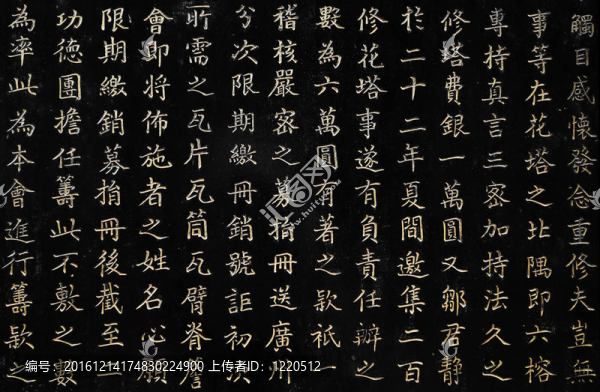 觸目感懷發念重修夫豈無
事等在花塔之北隅即六榕
專持真言三密加持法久之
修塔費銀一萬圓又鄒君静
於二十二年夏間邀集二百
修花塔事遂有負責任辦之
數為六萬圓有著之款祇一
稽核嚴密之募捐冊送廣州
分次限期繳冊銷號詎初次
所需之瓦片瓦筒瓦臂脊簷
會即將佈施者之姓名心願
限期繳銷募捐冊後截至一
功德團擔任籌此不敷之數
為率此為本會進行籌款之
汇图网
www.huitu.com
编号：20161214174830224900 上传者ID：1220512